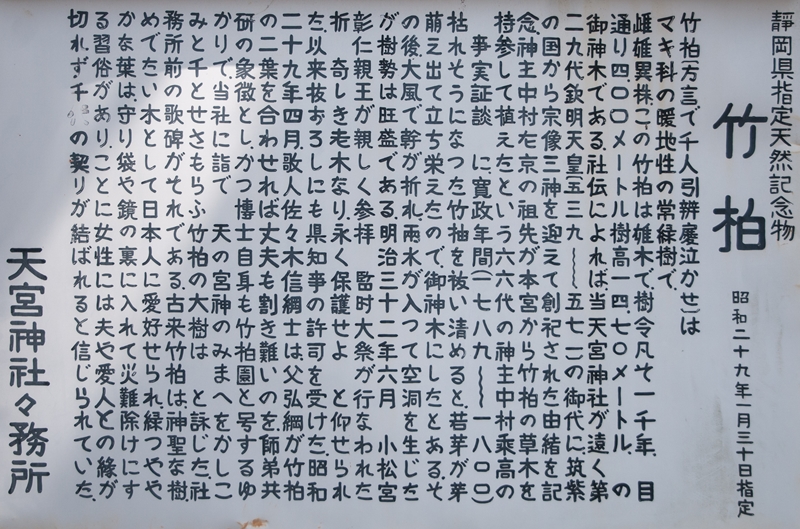 静岡県指定天然記念物
竹柏
昭和二十九年一月三十日指定
竹柏(方言で千人引辨慶泣かせ)は
マキ科の暖地性の常緑樹で、
雌雄異株、この竹柏は雄木で、樹令凡そ一千年、目
通り四〇〇メートル樹高一四、七〇メートル、の
御神木である。社伝によれば、当天宮神社が遠く第
二九代欽明天皇(五三九〜五七一)の御代に、筑紫
の国から宗像三神を迎えて創祀された由緒を記
念、神主中村左京の祖先が本宮から竹柏の草木を
持参して植えたという六六代の神主中村乗高の
事実証談 に寛政年間(一七八九〜一八〇〇)
枯れそうになった竹柚を祓い清めると、若芽が芽
萌え出て立ち栄えたので、御神木にしたとある。そ
の後大風で幹が折れ、雨水が入って空洞を生じた
が樹勢は旺盛である。明治三十二年六月 小松宮
彰仁親王が親しく参拝 臨時大祭が行なわれた
折 奇しき老木なり、永く保護せよ と仰せられ
た、以来枝おろしにも県知事の許可を受けた。昭和
二十九年四月、歌人佐々木信綱士は、父弘綱が竹柏
の二葉を合わせれば丈夫も割き難いのを、師弟共
研の象徴とし、かつ博士自身も竹柏園と号するゆ
かりで、当社に詣で 天の宮神のみまへをかしこ
みと千とせさもらふ竹柏の大樹は と詠じた、社
務所前の歌碑がそれである。古来竹柏は、神聖な樹、
めでたい木として日本人に愛好せられ、緑つやや
かな葉は、守り袋や鏡の裏に入れて災難除けにす
る習俗があり、ことに女性には夫や愛人との縁が
切れず千の契りが結ばれると信じられていた。
天宮神社々務所